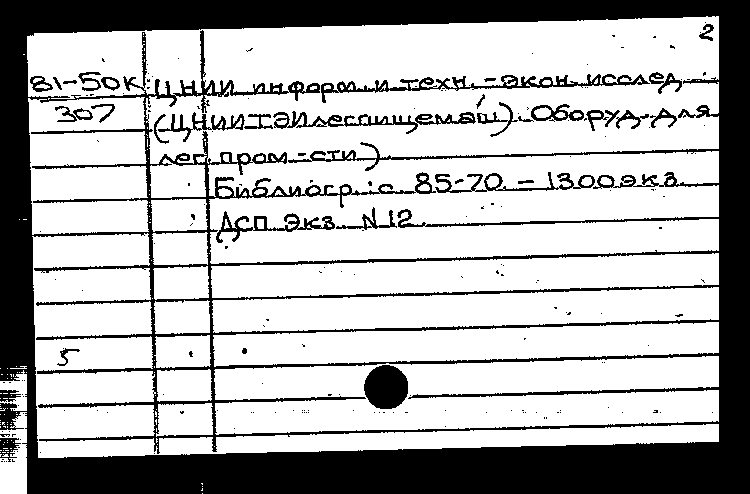 2
81-50к ЦНИИ информ. и техн.-экон. исслед.
307 (ЦНИИТЭИлегпищемаш). Оборуд. для
лег. пром-сти)
Библиогр.: с. 85-70. - 1300 экз.
ДСП Экз. N 12.
5